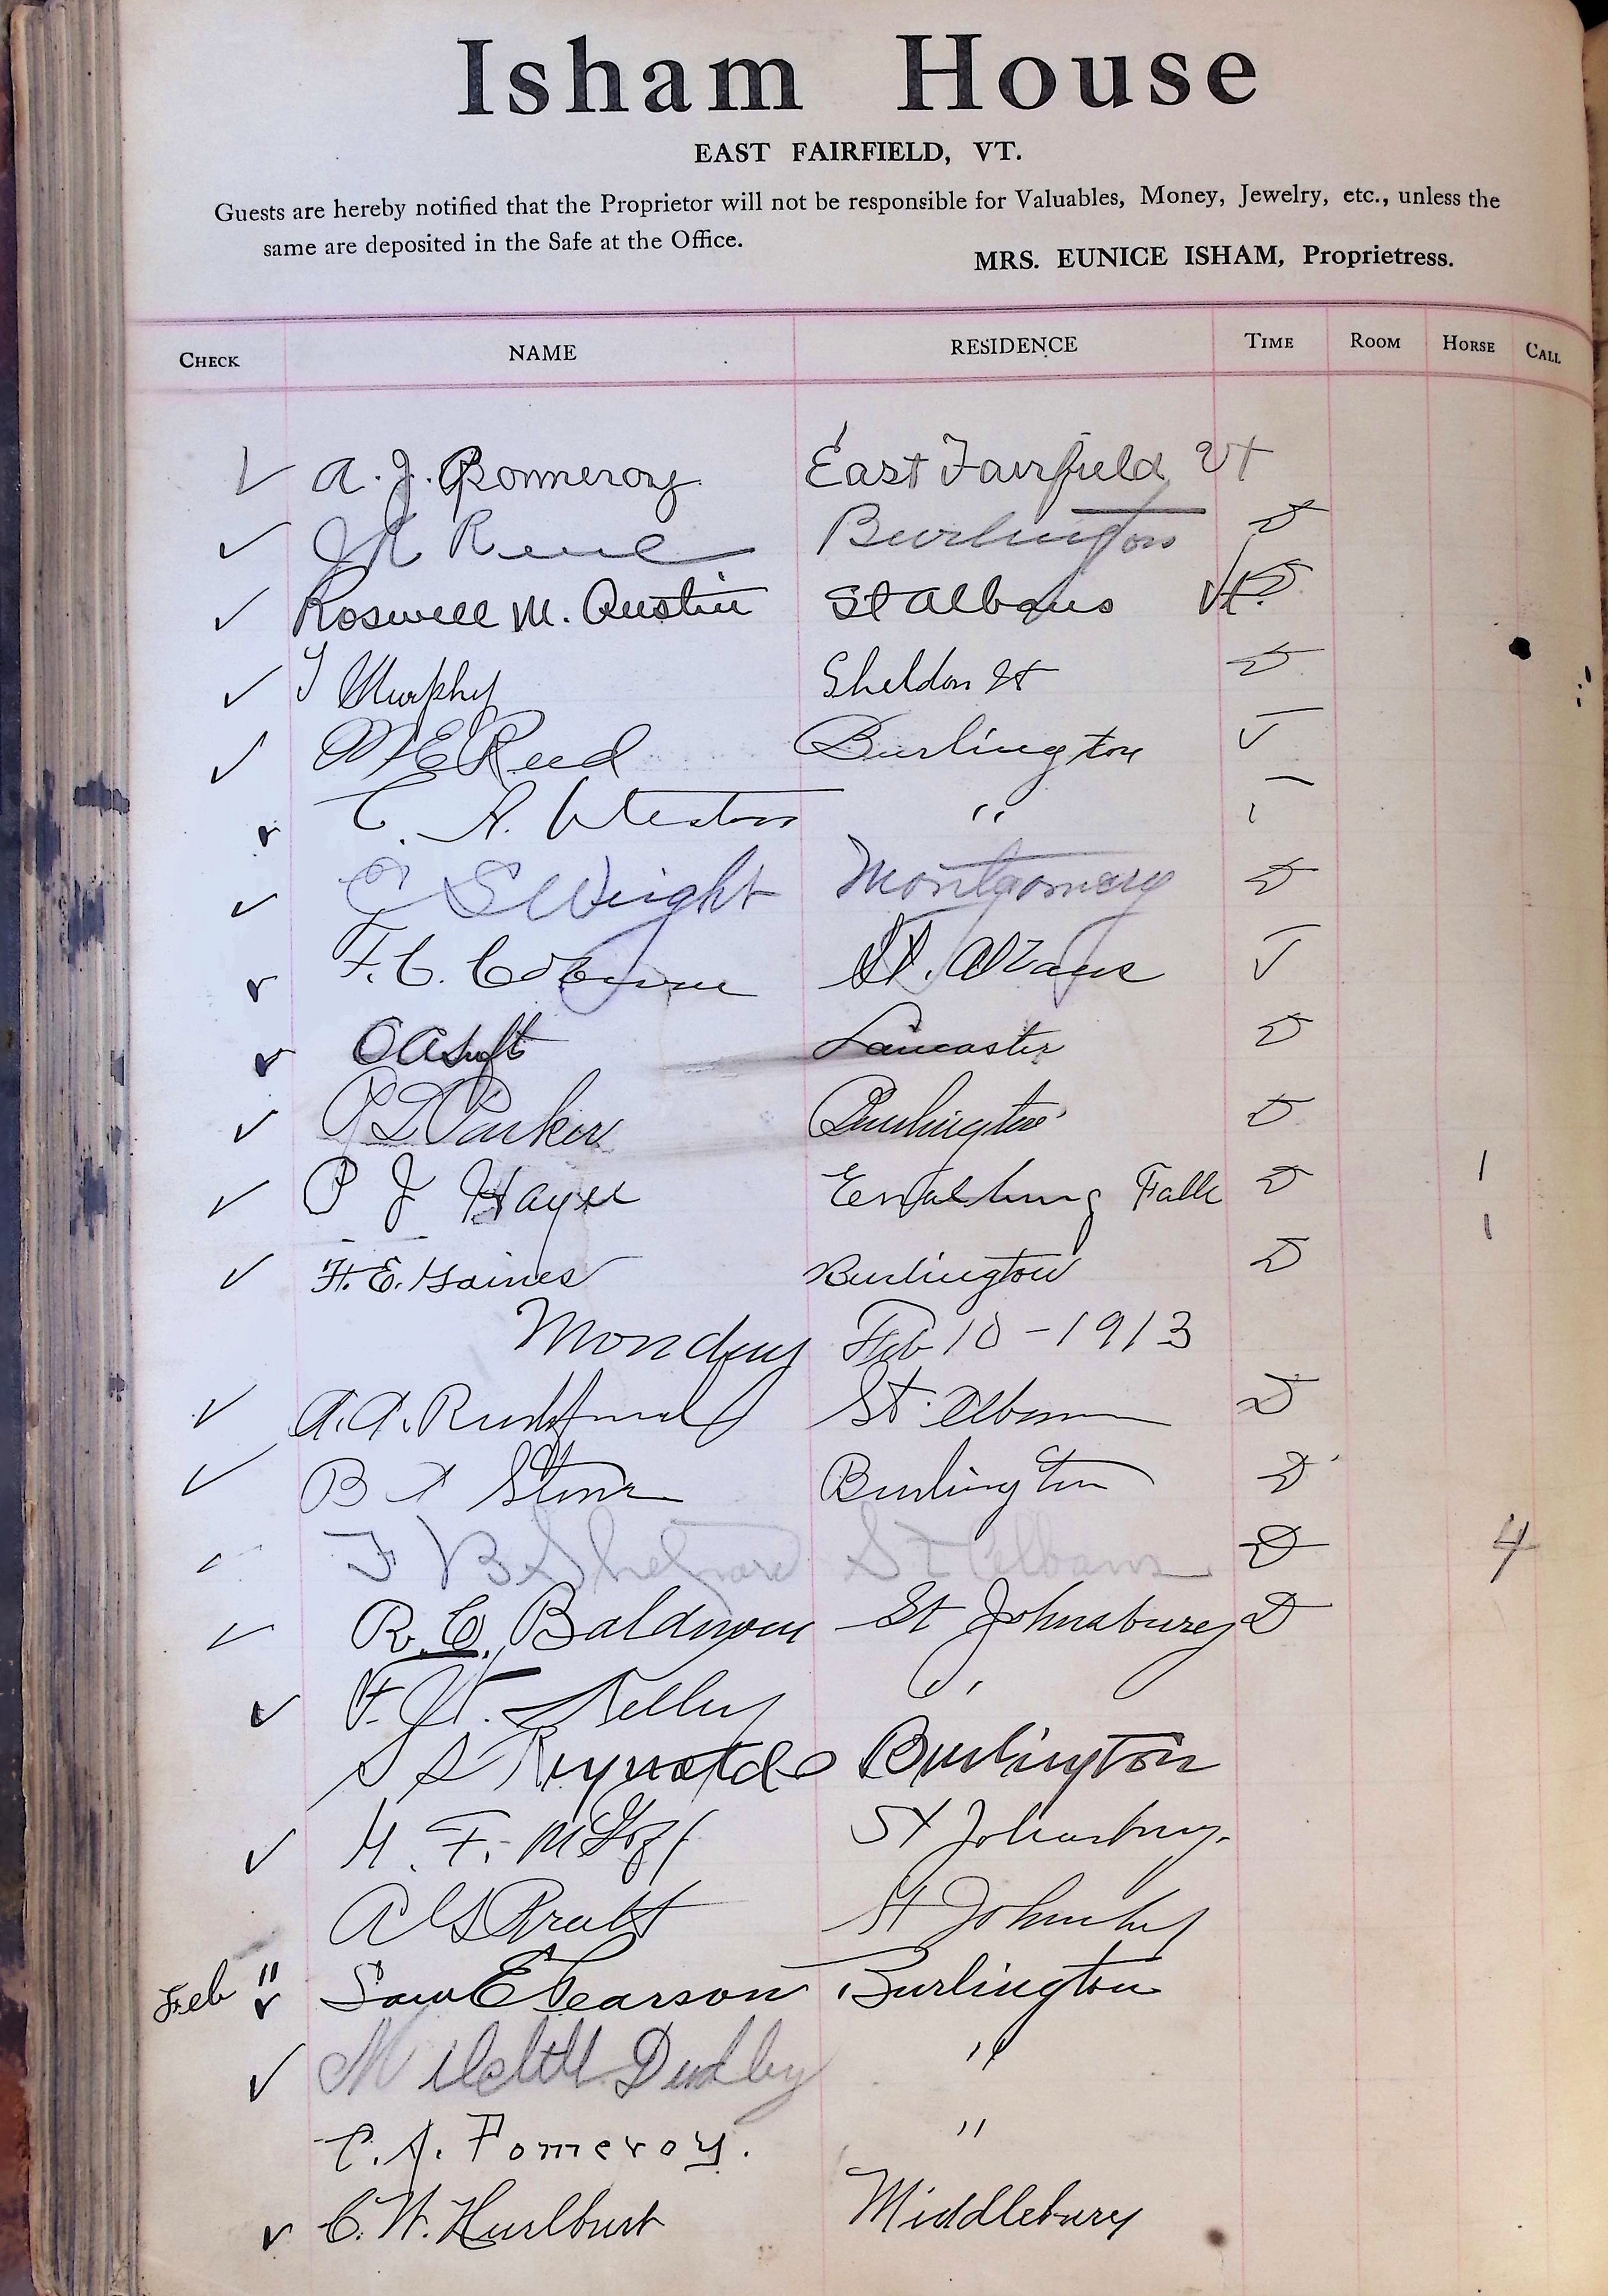 Isham House
EAST FAIRFIELD, VT.
Guests are hereby notified that the Proprietor will not be responsible for Valuables, Money, Jewelry, etc., unless the
same are deposited in the Safe at the Office.
MRS. EUNICE ISHAM, Proprietress.
CHECK NAME RESIDENCE TIME ROOM HORSE CALL
✓ A. J. Pomeroy East Fairfield Vt
✓ Burlington D
✓ Roswell M. Austin St Albans Vt. D
✓ Murphy Sheldon Vt D
✓ Reed Burlington
✓ E. A. Weston "
✓ C S Wright Montgomery D
✓ F. C. Coburn St. Albans
✓ Lancaster D
✓ Parker Burlington D
✓ P J Hayes Enosburg Falls D 1
✓ H. E. Gaines Burlington D 1
Monday Feb 10 - 1913
✓ A. A. St. Albans D
✓ B Stone Burlington D
✓ F B Shepard St Albans D 4
✓ R. C. Baldwin St Johnsbury D
✓ Kelley "
S S Reynolds Burlington
✓ St Johnsbury.
Pratt St Johnsbury
Feb 11 ✓ Sam E Pearson Burlington
✓ "
C. A. Pomeroy. "
✓ C. W. Hurlburt Middlebury